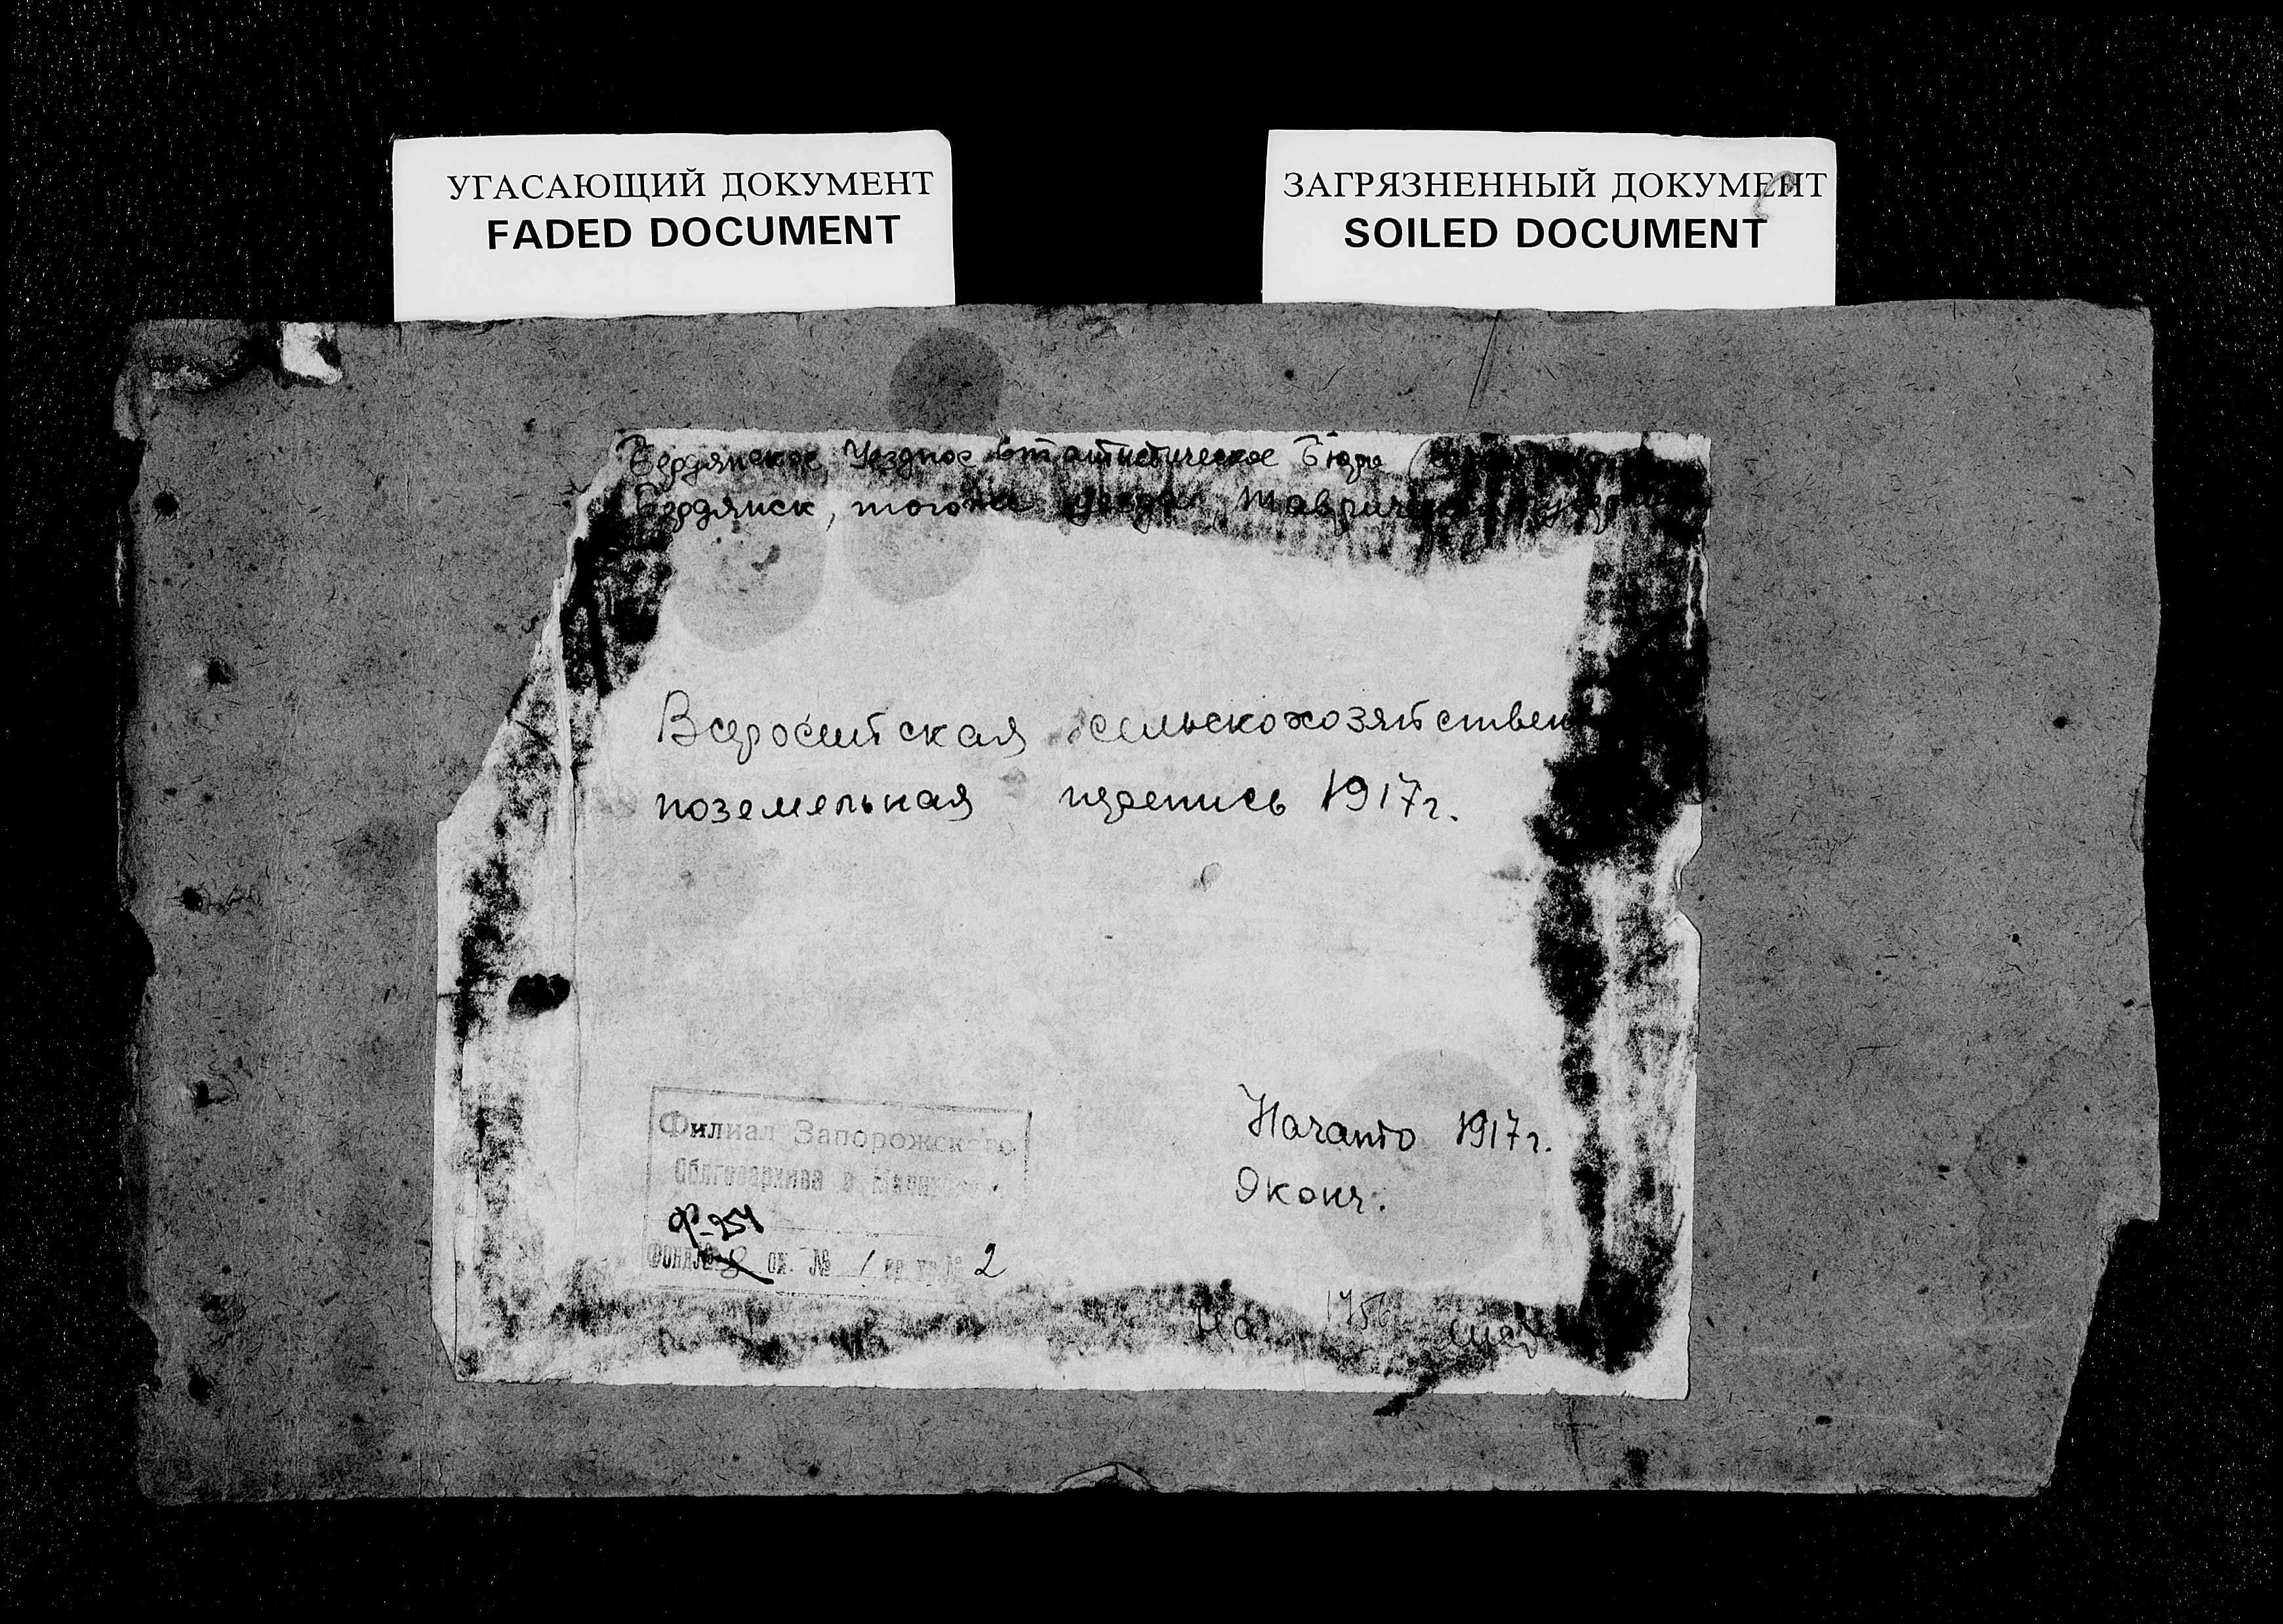 УГАСАЮЩИЙ ДОКУМЕНТ
FADED DOCUMENT
ЗАГРЯЗНЕННЫЙ ДОКУМЕНТ
SOILED DOCUMENT
Бердянское Уездное Статистическое Бюро
Бердянск, того же уезда, Таврич
Всеросийская сельскохозяйствен
поземельная перепись 1917г.
Филиал Запорожского
Облгосархива в
Ф-254
Фонд № 8 оп. № 1 ед. хр. № 2
Начато 1917г.
Оконч.
На